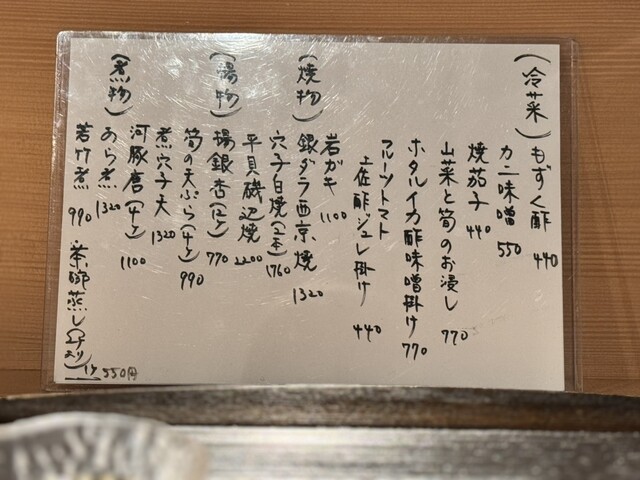 (冷菜)
もずく酢 440
カニ味噌 550
焼茄子 440
山菜と筍のお浸し 770
ホタルイカ酢味噌掛け 770
フルーツトマト
土佐酢ジュレ掛け 440
(焼物)
岩ガキ 1100
銀ダラ西京焼 1320
穴子白焼(2本) 1760
平貝磯辺焼 2200
(揚物)
揚銀杏(12ケ) 770
筍の天ぷら(4ケ) 990
煮穴子天 1320
河豚唐(4ケ) 1100
(煮物)
あら煮 1320
若竹煮 990
茶碗蒸し(2ケより)1ケ550円